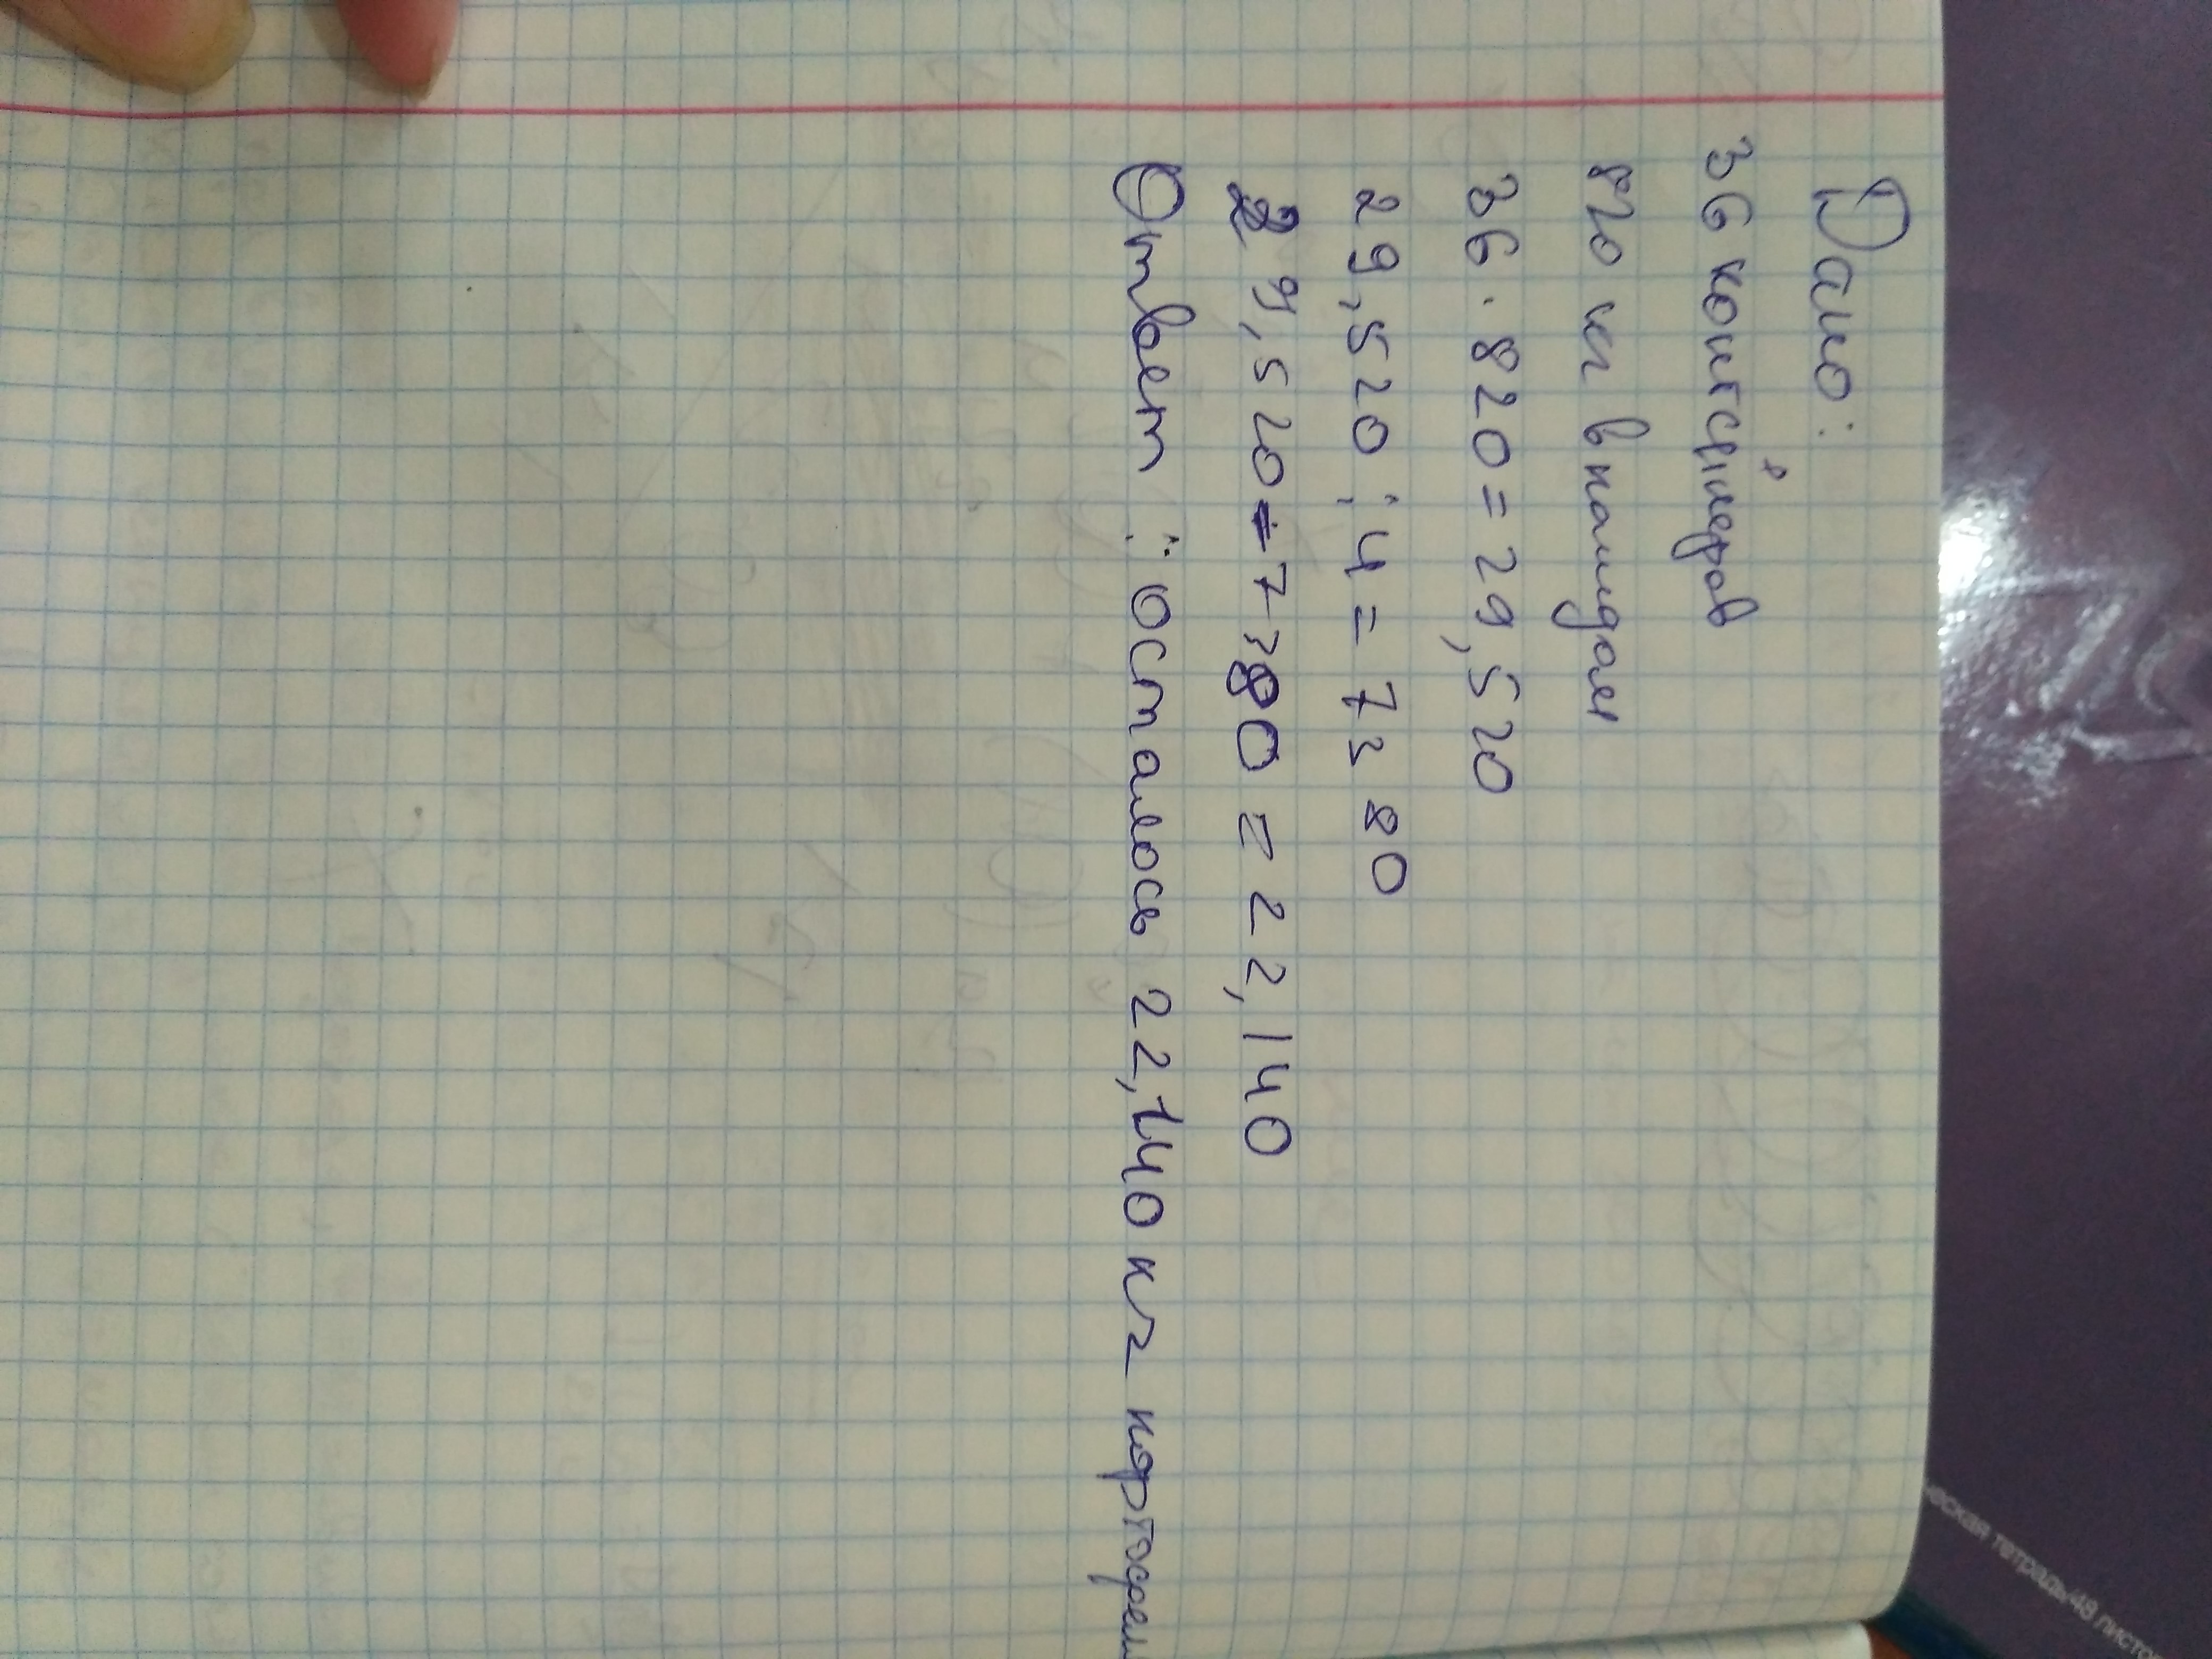 Дано:
36 контейнеров
820 кг в каждом
36 · 820 = 29,520
29,520 : 4 = 7380
29,520 - 7380 = 22,140
Ответ: осталось 22,140 кг картофел
ческая тетрадь/48 листо